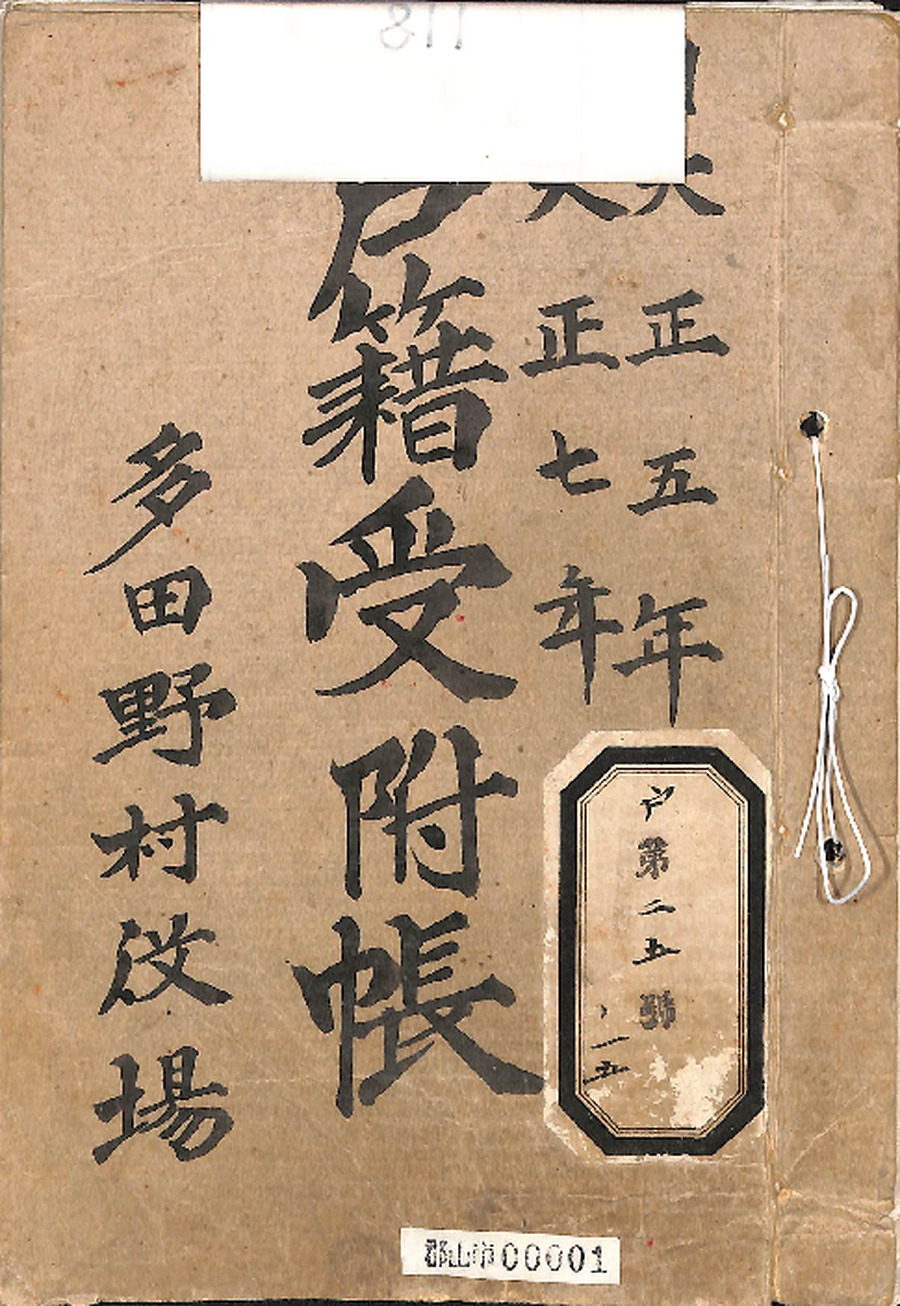 811
大正五年
大正七年
戸籍受附帳
多田野村役場
戸第二五號
一五
郡山市00001